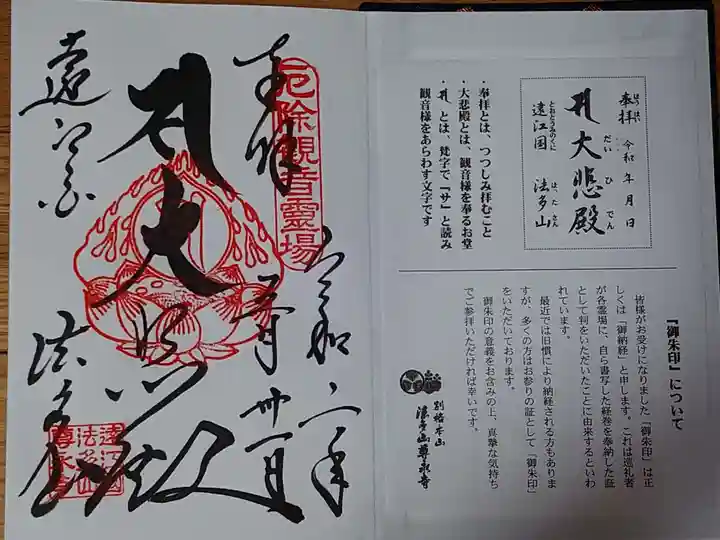 奉拝
厄除観音霊場
令和二年
三月卅一日
大悲殿
遠江国
法多山
遠江國
法多山
尊永寺
奉拝 令和 年 月 日
ほうはい
大悲殿
だい ひ でん
遠江国 法多山
とおとうみのくに はったさん
・奉拝とは、つつしみ拝むこと
・大悲殿とは、観音様を奉るお堂
・ とは、梵字で『サ』と読み
観音様をあらわす文字です
『御朱印』について
皆様がお受けになりました『御朱印』は正
しくは「御納経」と申します。これは巡礼者
が各霊場に、自ら書写した経巻を奉納した証
として判をいただいたことに由来するといわ
れています。
最近では旧慣により納経される方もありま
すが、多くの方はお参りの証として「御朱印」
をいただいております。
御朱印の意義をお含みの上、真摯な気持ち
でご参拝いただければ幸いです。
別格本山
法多山尊永寺